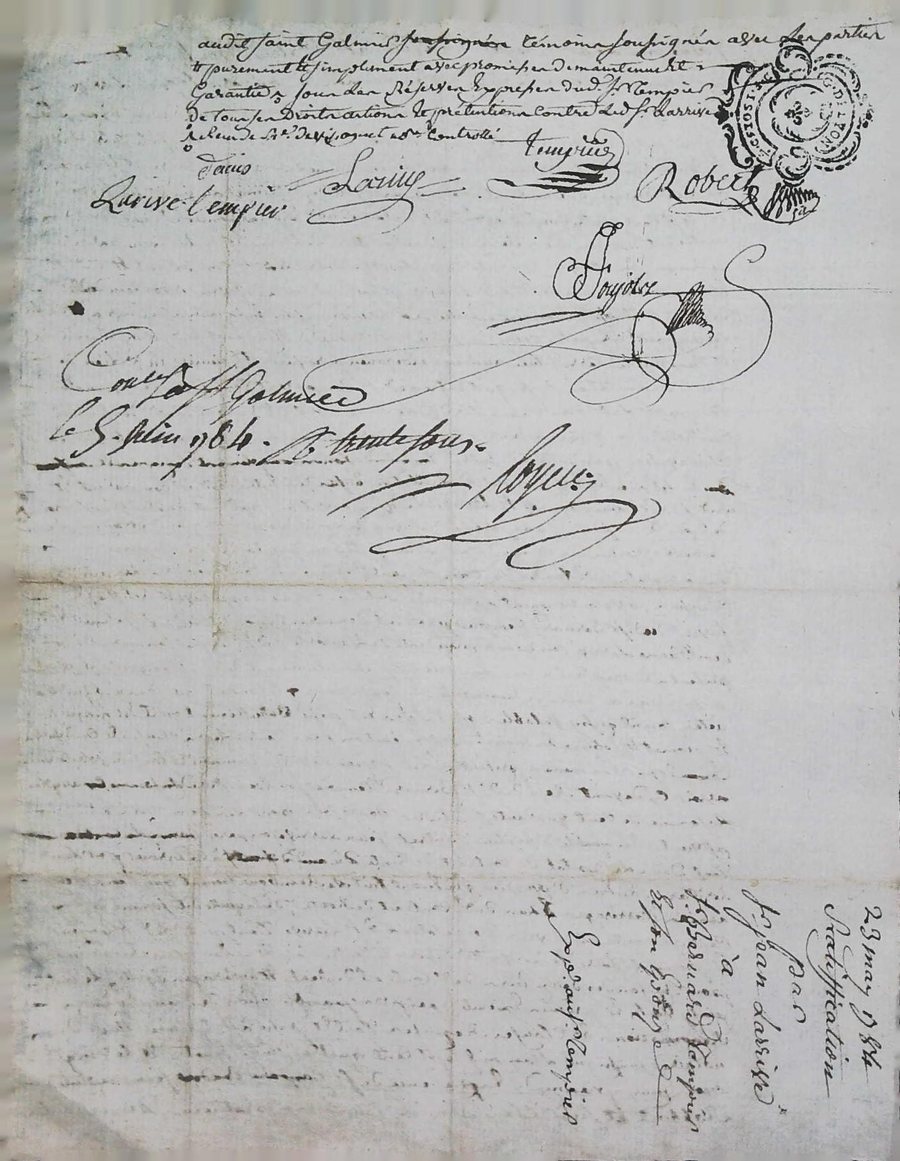 audit Saint Galmier témoins soussignés avec les parties
purement et simplement avec promesse de maintenue et
Garantie, sous les Réserves Expresses dud. Sr. Tempier
de tous ses Droits actions et prétentions Contre led. Sr. Larrive
Controllé
Larive Tempier
Larive
Tempier
Robert
Ponjolse
GNAL. DE LYON
Con.lé à St Galmier
le 5. Juin 1784. R trente sous.
Royer
23 may 1784
Ratiffication
par
Sr. Jean Larrive
à
Sr. Bernard Tempier
et son Epouse
Expé. au Sr. Tempier